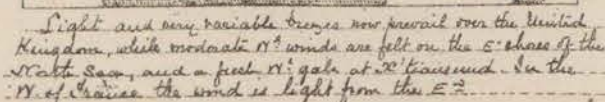 Light and very variable breezes now prevail over the United
Kingdom, while moderate Nᵉ winds are felt on the Eⁿ shores of the
North Sea, and a fresh Nᵉ gale at X'tiansund. In the
W of France the wind is light from the Eᵈ